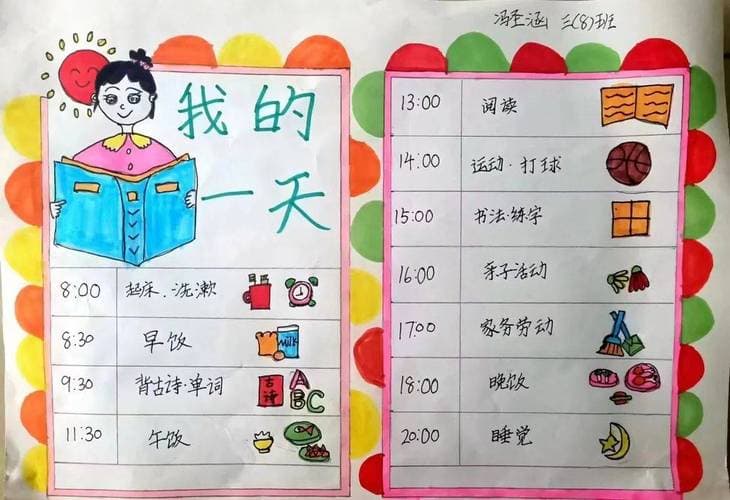 冯圣涵 三(8)班
我的
一天
8:00 起床.洗漱
8:30 早饭
milk
9:30 背古诗·单词
古诗
ABC
11:30 午饭
13:00 阅读
14:00 运动·打球
15:00 书法·练字
16:00 亲子活动
17:00 家务劳动
18:00 晚饭
20:00 睡觉